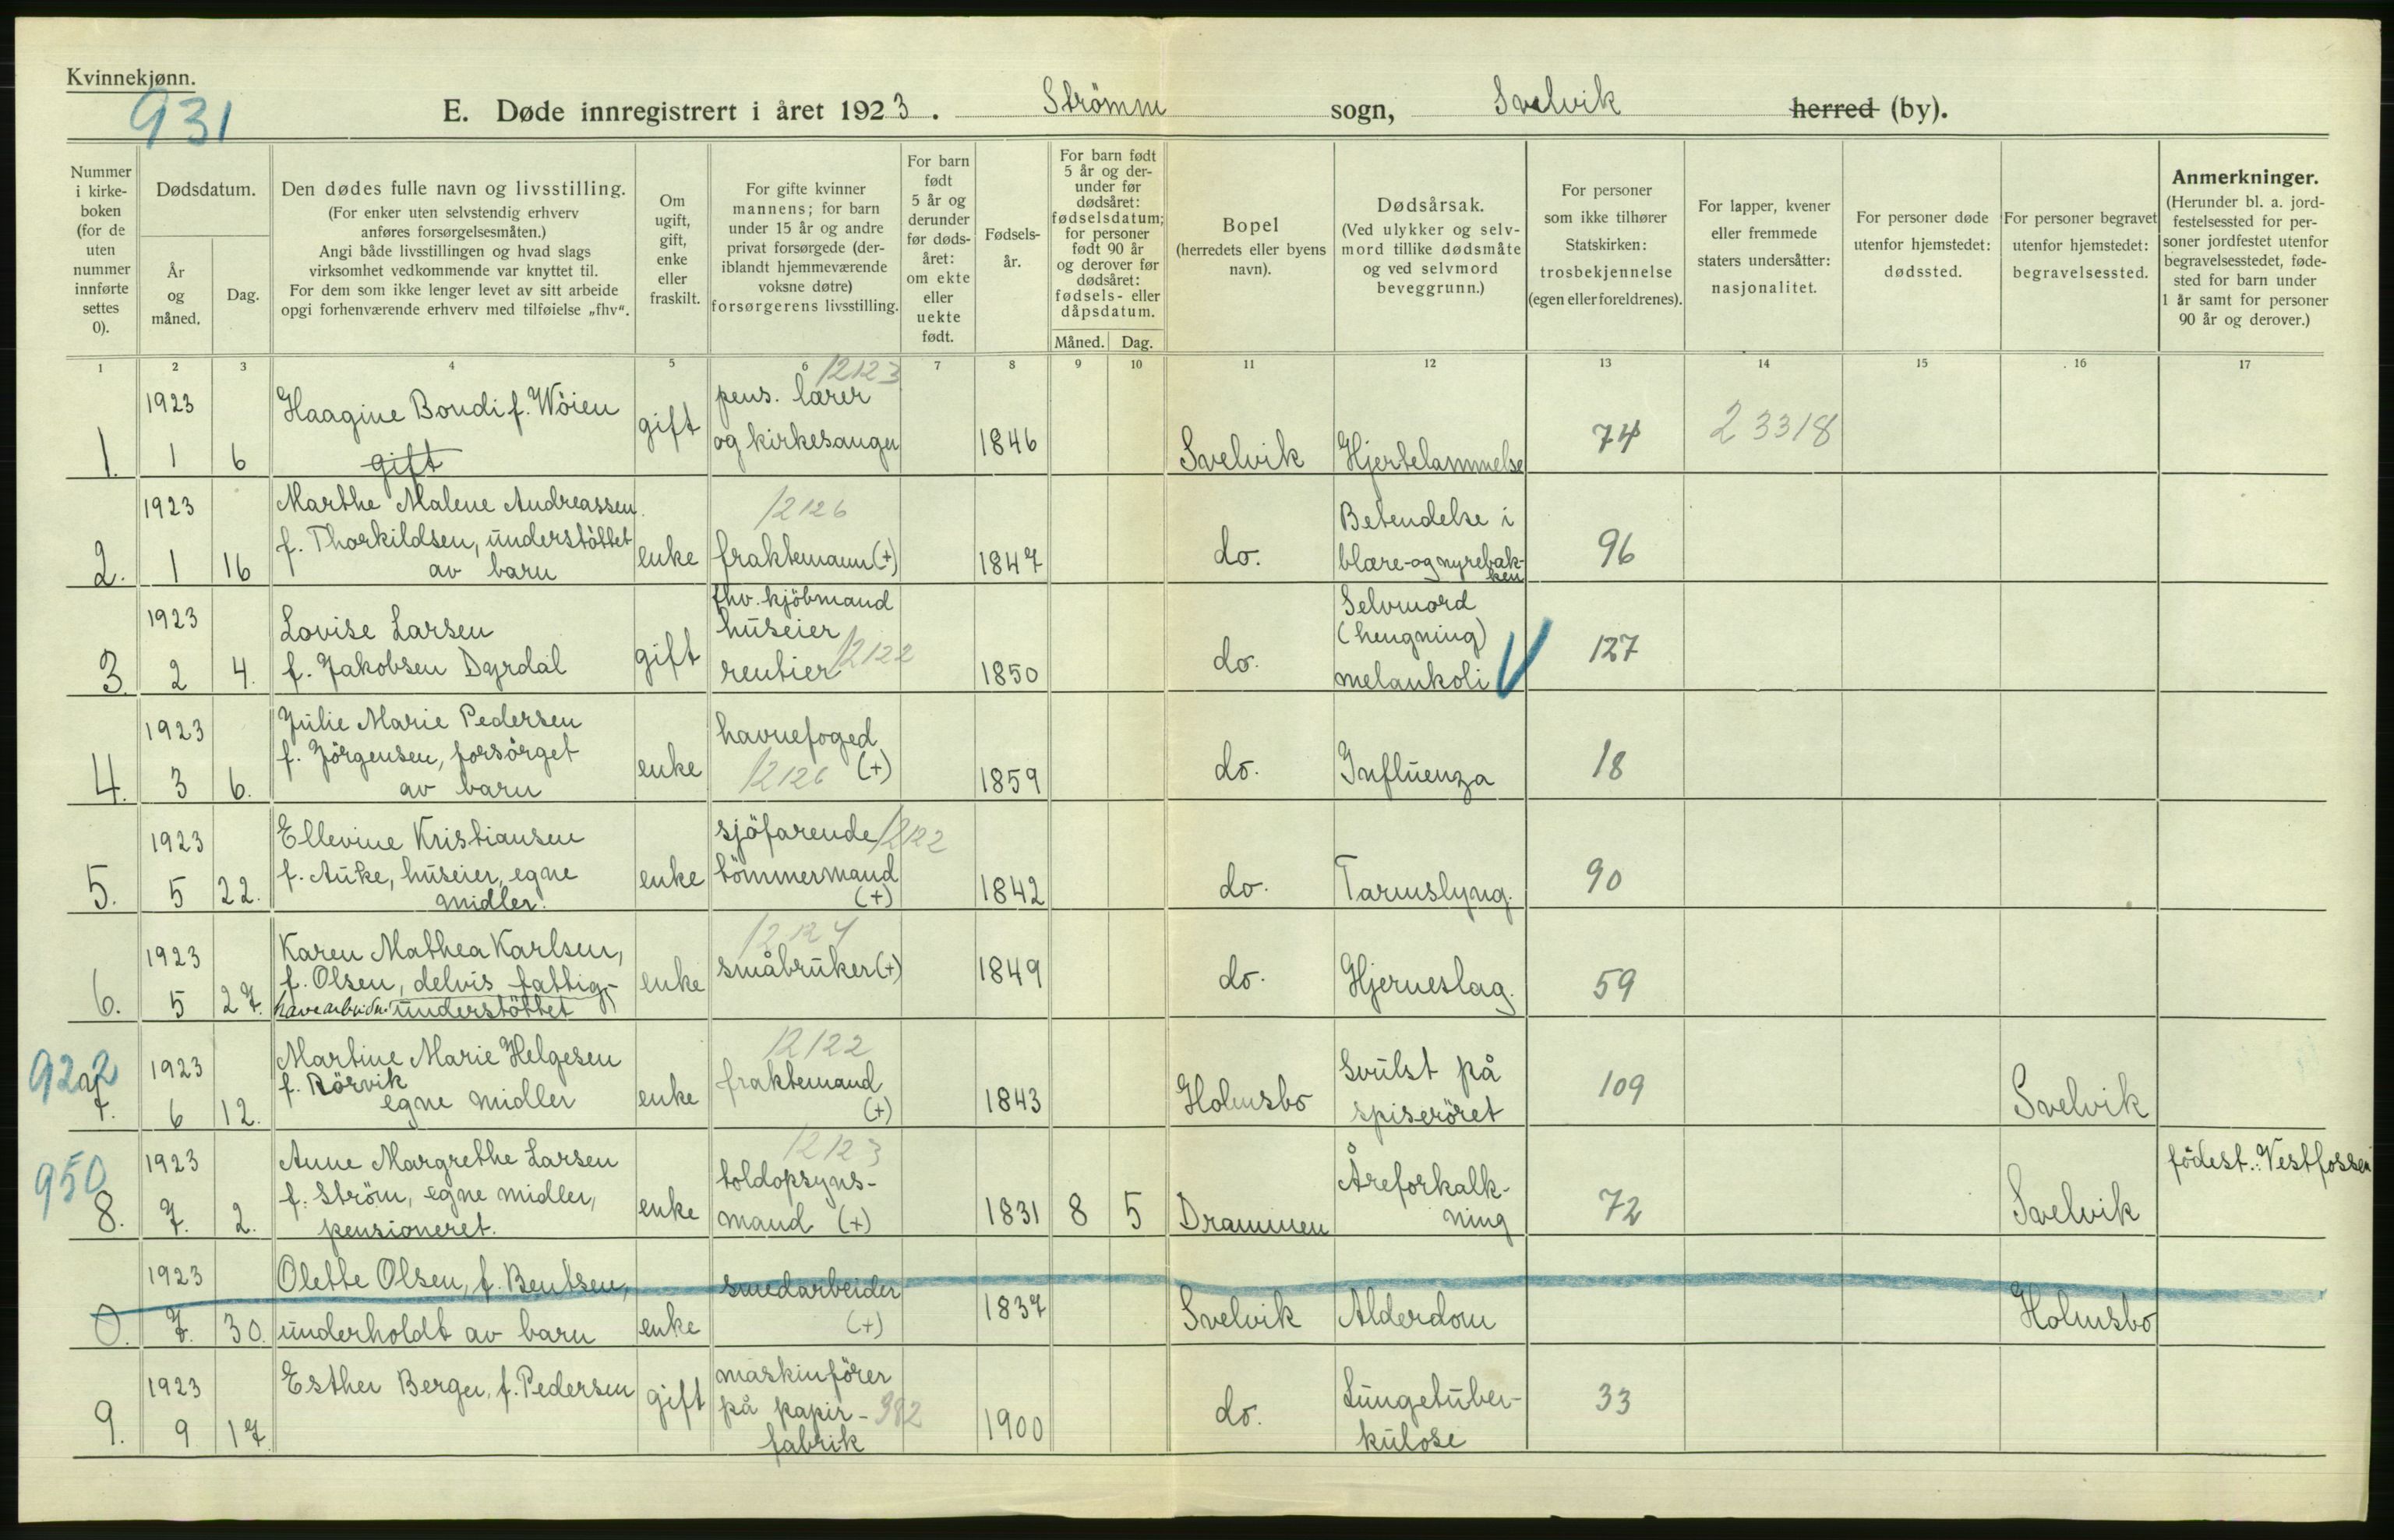 Kvinnekjønn.
931
E. Døde innregistrert i året 1923. Strömm sogn, Svelvik herred (by).
Nummer i kirke-boken (for de uten nummer innførte settes 0).
Dødsdatum.
År og måned.
Dag.
Den dødes fulle navn og livsstilling.
(For enker uten selvstendig erhverv
anføres forsørgelsesmåten.)
Angi både livsstillingen og hvad slags
virksomhet vedkommende var knyttet til.
For dem som ikke lenger levet av sitt arbeide
opgi forhenværende erhverv med tilføielse „fhv“.
Om ugift, gift, enke eller fraskilt.
For gifte kvinner
mannens; for barn
under 15 år og andre
privat forsørgede (der-
iblandt hjemmeværende
voksne døtre)
forsørgerens livsstilling.
For barn født 5 år og derunder før døds-året: om ekte eller uekte født.
Fødsels-år.
For barn født
5 år og der-
under før
dødsåret:
fødselsdatum;
for personer
født 90 år
og derover før
dødsåret:
fødsels- eller
dåpsdatum.
Måned. Dag.
Bopel
(herredets eller byens
navn).
Dødsårsak.
(Ved ulykker og selv-
mord tillike dødsmåte
og ved selvmord
beveggrunn.)
For personer
som ikke tilhører
Statskirken:
trosbekjennelse
(egen eller foreldrenes).
For lapper, kvener
eller fremmede
staters undersåtter:
nasjonalitet.
For personer døde
utenfor hjemstedet:
dødssted.
For personer begravet
utenfor hjemstedet:
begravelsessted.
Anmerkninger.
(Herunder bl. a. jord-
festelsessted for per-
soner jordfestet utenfor
begravelsesstedet, føde-
sted for barn under
1 år samt for personer
90 år og derover.)
1 2 3 4 5 6 7 8 9 10 11 12 13 14 15 16 17
1. 1923 1 6 Haagine Bondi f. Wöien
gift
gift 12123
pens. lærer
og kirkesanger 1846 Svelvik Hjertelammelse 74 23318
2. 1923 1 16 Marthe Malene Andreassen
f. Thorkildsen, understöttet
av barn
enke 12126
fraktemann (+) 1847 do. Betendelse i
blære- og nyrebæk-
ken 96
3. 1923 2 4. Lovise Larsen
f. Jakobsen Dyrdal
gift fhv. kjöbmand
huseier
rentier 12122 1850 do. Selvmord
(hengning)
melankoli 127
4. 1923 3 6. Julie Marie Pedersen
f. Jörgensen, forsörget
av barn
enke havnefoged
12126 (+) 1859 do. Influenza 18
5. 1923 5 22. Ellevine Kristiansen
f. Auke, huseier, egne
midler.
enke sjöfarende 12122
tömmermand
(+) 1842 do. Tarmslyng. 90
6. 1923 5 27. Karen Mathea Karlsen,
f. Olsen, delvis fattig-
understöttet
enke 12124
småbruker (+) 1849 do. Hjerneslag. 59
922
7. 1923 6 12. Martine Marie Helgesen
f. Rörvik
egne midler
enke 12122
fraktemand
(+) 1843 Holmsbo Svulst på
spiseröret 109 Svelvik
950
8. 1923 7. 2. Anne Margrethe Larsen
f. Ström, egne midler,
pensioneret.
enke 12123
toldopsyns-
mand (+) 1831 8 5 Drammen Åreforkalk-
ning 72 Svelvik födest.: Vestfossen
0. 1923 7. 30. Olette Olsen, f. Bentsen,
underholdt av barn
enke smedarbeider
(+) 1837 Svelvik Alderdom Holmsbo
9. 1923 9 17. Esther Berger, f. Pedersen
gift maskinförer
på papir- 382
fabrik 1900 do. Lungetuber-
kulose 33